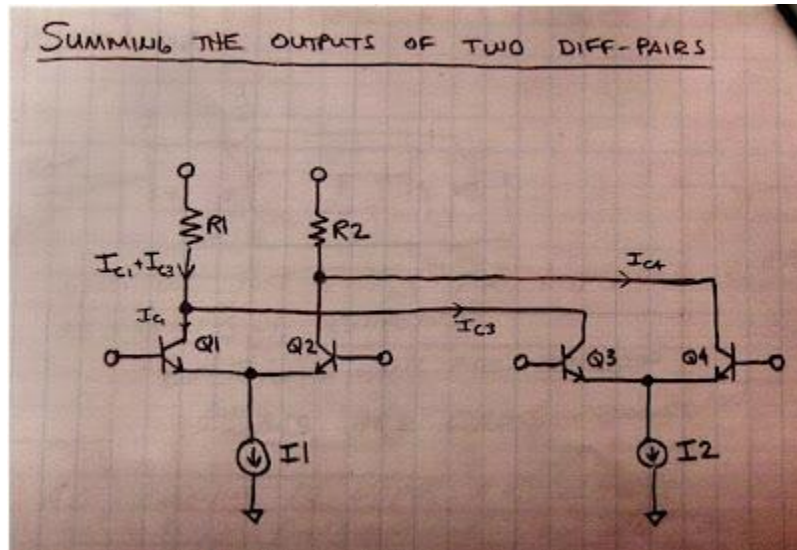 SUMMING THE OUTPUTS OF TWO DIFF-PAIRS
R1
R2
IC1+IC3
IC4
IC1
IC3
Q1
Q2
Q3
Q4
I1
I2